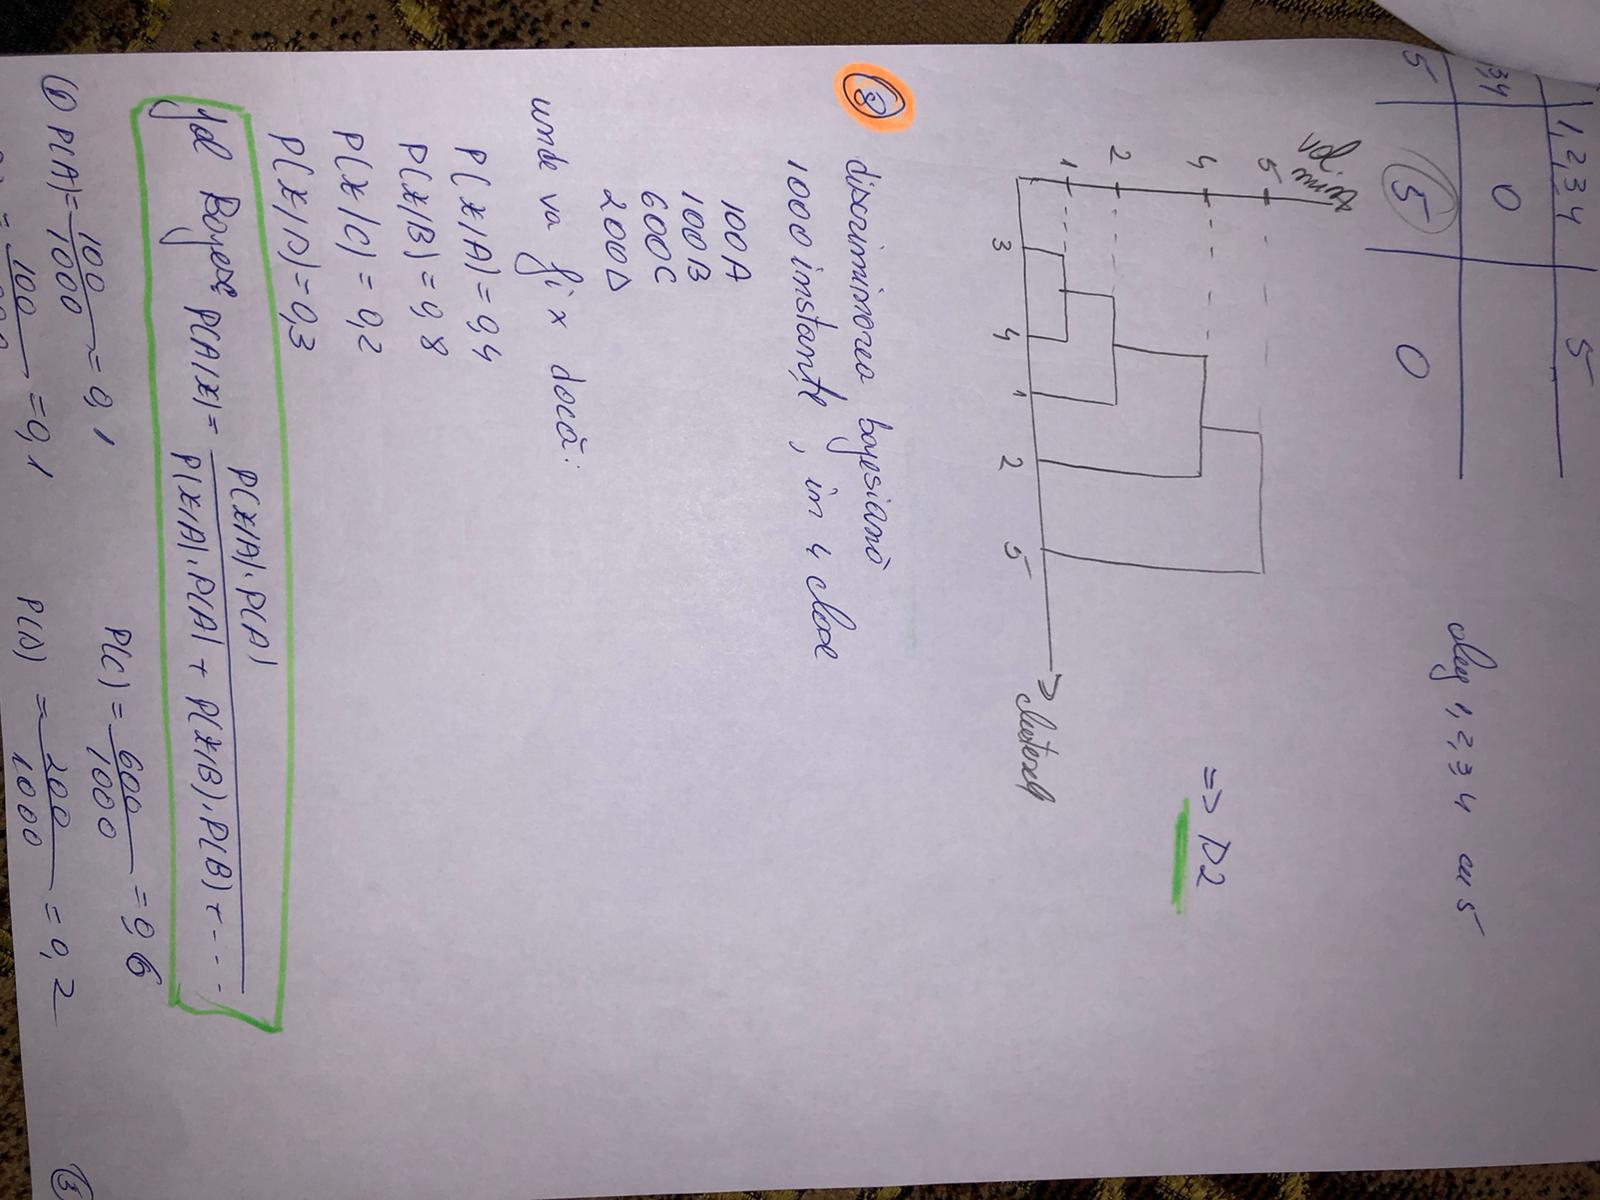 1,2,3,4 5
3,4 0 5
5 5 0
aleg 1,2,3,4 cu 5
5
4
2
1
3 4 1 2 5
clusterele
=> D2
8 discriminarea bayesiană
1000 instanțe, în 4 clase
100A
100B
600C
200D
unde va fi x dacă:
P(x/A) = 0,4
P(x/B) = 0,8
P(x/C) = 0,2
P(x/D) = 0,3
Bayes: P(A/x) = P(x/A).P(A)
P(x/A).P(A) + P(x/B).P(B) + ...
P(A) = 100 = 0,1
1000
P(C) = 600 = 0,6
1000
= 100 = 0,1
P(D) = 200 = 0,2
1000
3